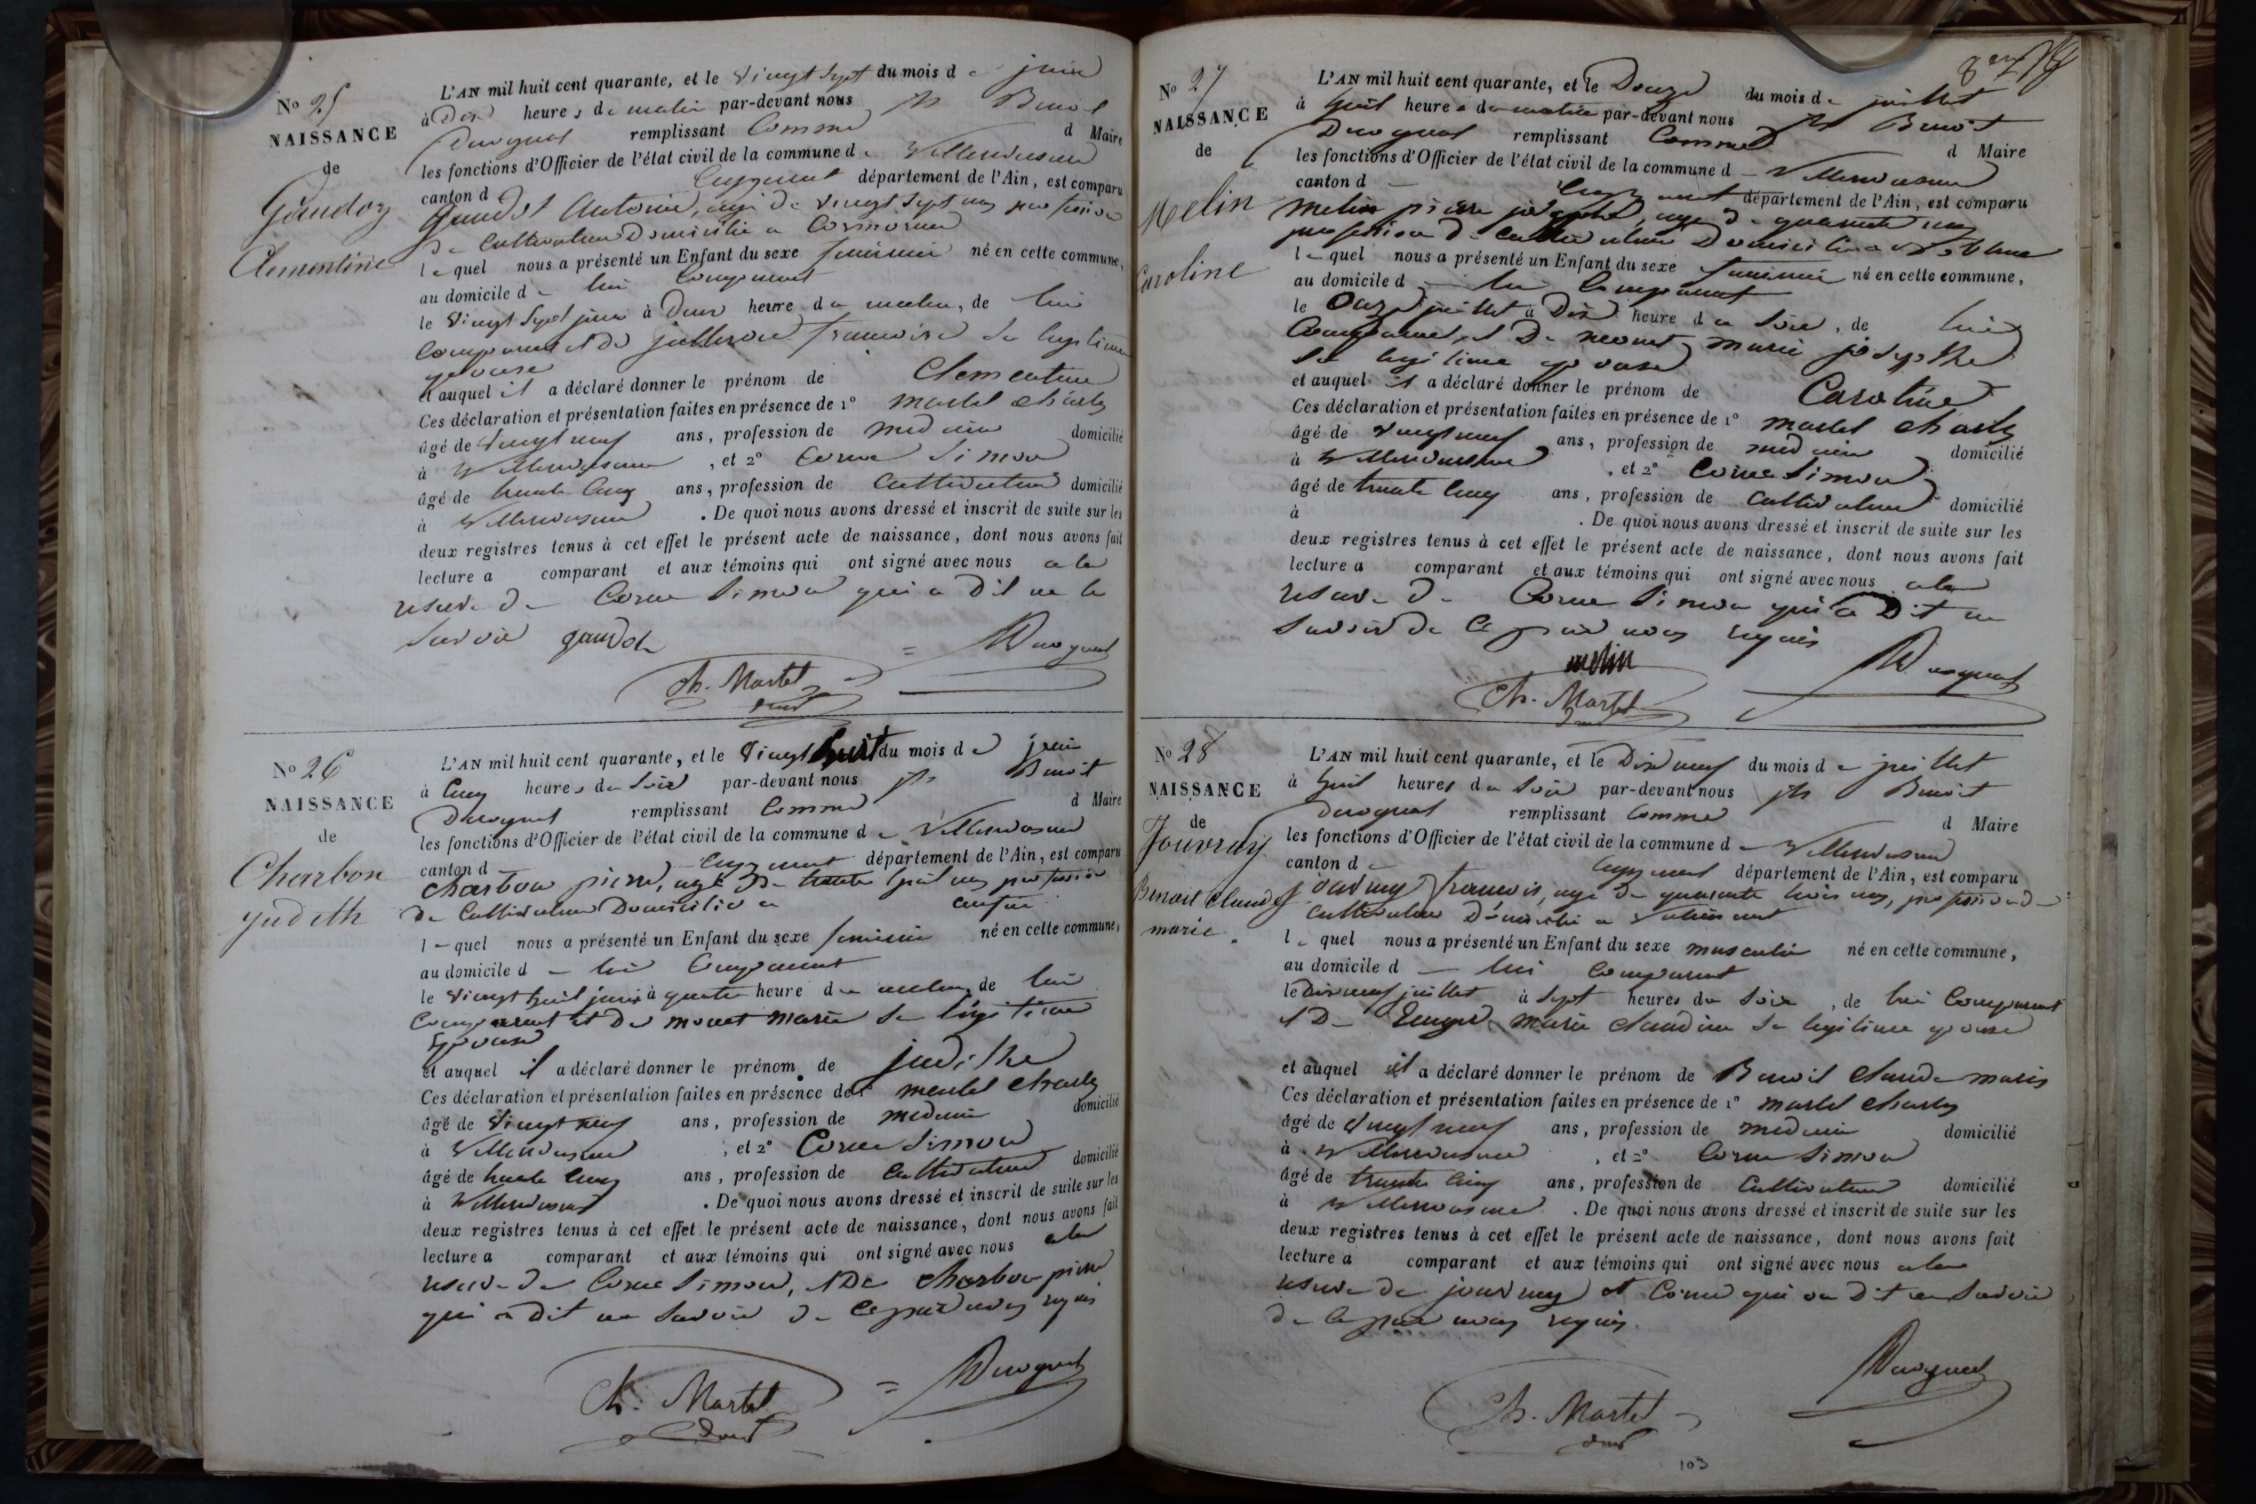 No 25
NAISSANCE
de
Gaudoz
Clementine
L'AN mil huit cent quarante, et le vingt sept du mois de juin
à Dix heures du matin par-devant nous Benoit
Ducognat remplissant Comme d Maire
les fonctions d'Officier de l'état civil de la commune de Villereversure
canton d Ceyzeriat département de l'Ain, est comparu
Antoine, agé de vingt sept ans profession
de Cultivateur Domicilié a
lequel nous a présenté un Enfant du sexe feminin né en cette commune,
au domicile de lui Comparant
le vingt sept juin à Deux heure du matin, de lui
Comparant et de françoise sa legitime
epouse
et auquel il a déclaré donner le prénom de Clementine
Ces déclaration et présentation faites en présence de 1° martel charles
âgé de vingt neuf ans, profession de medecin domicilié
à Villereversure, et 2° Corne Simon
âgé de trente Cinq ans, profession de Cultivateur domicilié
à Villereversure. De quoi nous avons dressé et inscrit de suite sur les
deux registres tenus à cet effet le présent acte de naissance, dont nous avons fait
lecture a comparant et aux témoins qui ont signé avec nous a la
reserve de Corne Simon qui a Dit ne le
Savoir
Ch. Martel Ducognat
No 26
NAISSANCE
de
Charbon
Judith
L'AN mil huit cent quarante, et le vingt huit du mois de juin
à Cinq heures du Soir par-devant nous Benoit
Ducognat remplissant Comme d Maire
les fonctions d'Officier de l'état civil de la commune de Villereversure
canton d Ceyzeriat département de l'Ain, est comparu
charbon pierre, agé de trente huit ans profession
de Cultivateur Domicilié a
lequel nous a présenté un Enfant du sexe feminin né en cette commune,
au domicile de lui Comparant
le vingt huit juin à quatre heure du matin, de lui
Comparant et de monet marie sa legitime
Epouse
et auquel il a déclaré donner le prénom de judithe
Ces déclaration et présentation faites en présence de 1° martel charles
âgé de vingt neuf ans, profession de medecin domicilié
à Villereversure, et 2° Corne Simon
âgé de trente Cinq ans, profession de Cultivateur domicilié
à Villereversure. De quoi nous avons dressé et inscrit de suite sur les
deux registres tenus à cet effet le présent acte de naissance, dont nous avons fait
lecture a comparant et aux témoins qui ont signé avec nous a la
reserve de Corne Simon, et De charbon pierre
qui a dit ne Savoir de ce par nous requis
Ch. Martel Ducognat
No 27
NAISSANCE
de
Melin
Caroline
L'AN mil huit cent quarante, et le Douze du mois de juillet
à huit heure du matin par-devant nous Benoit
Ducognat remplissant Comme d Maire
les fonctions d'Officier de l'état civil de la commune de Villereversure
canton d Ceyzeriat département de l'Ain, est comparu
Melin pierre joseph, age de quarante ans
profession de cultivateur Domicilié a
lequel nous a présenté un Enfant du sexe feminin né en cette commune,
au domicile de lui Comparant
le Onze juillet à Dix heure du Soir, de lui
Comparant, et De marie josephe
Sa legitime epouse
et auquel il a déclaré donner le prénom de Caroline
Ces déclaration et présentation faites en présence de 1° martel charles
âgé de vingt neuf ans, profession de medecin domicilié
à Villereversure, et 2° Corne Simon
âgé de trente Cinq ans, profession de Cultivateur domicilié
à . De quoi nous avons dressé et inscrit de suite sur les
deux registres tenus à cet effet le présent acte de naissance, dont nous avons fait
lecture a comparant et aux témoins qui ont signé avec nous a la
reserve de Corne Simon qui a Dit ne
Savoir de ce par nous requis
melin
Ch. Martel Ducognat
No 28
NAISSANCE
de
Jouvray
Benoit Claude
marie.
L'AN mil huit cent quarante, et le Dix neuf du mois de juillet
à huit heures du Soir par-devant nous Benoit
Ducognat remplissant Comme d Maire
les fonctions d'Officier de l'état civil de la commune de Villereversure
canton d Ceyzeriat département de l'Ain, est comparu
jouvray francois, age de quarante trois ans, profession de
Cultivateur Domicilié a
lequel nous a présenté un Enfant du sexe masculin né en cette commune,
au domicile de lui Comparant
le Dix neuf juillet à Sept heures du Soir, de lui Comparant
et De marie claudine Sa legitime epouse
et auquel il a déclaré donner le prénom de Benoit claude marie
Ces déclaration et présentation faites en présence de 1° martel charles
âgé de vingt neuf ans, profession de medecin domicilié
à Villereversure, et 2° Corne Simon
âgé de trente Cinq ans, profession de Cultivateur domicilié
à Villereversure. De quoi nous avons dressé et inscrit de suite sur les
deux registres tenus à cet effet le présent acte de naissance, dont nous avons fait
lecture a comparant et aux témoins qui ont signé avec nous a la
reserve de jouvray et Corne qui on Dit ne Savoir
de ce par nous requis.
Ch. Martel Ducognat
103